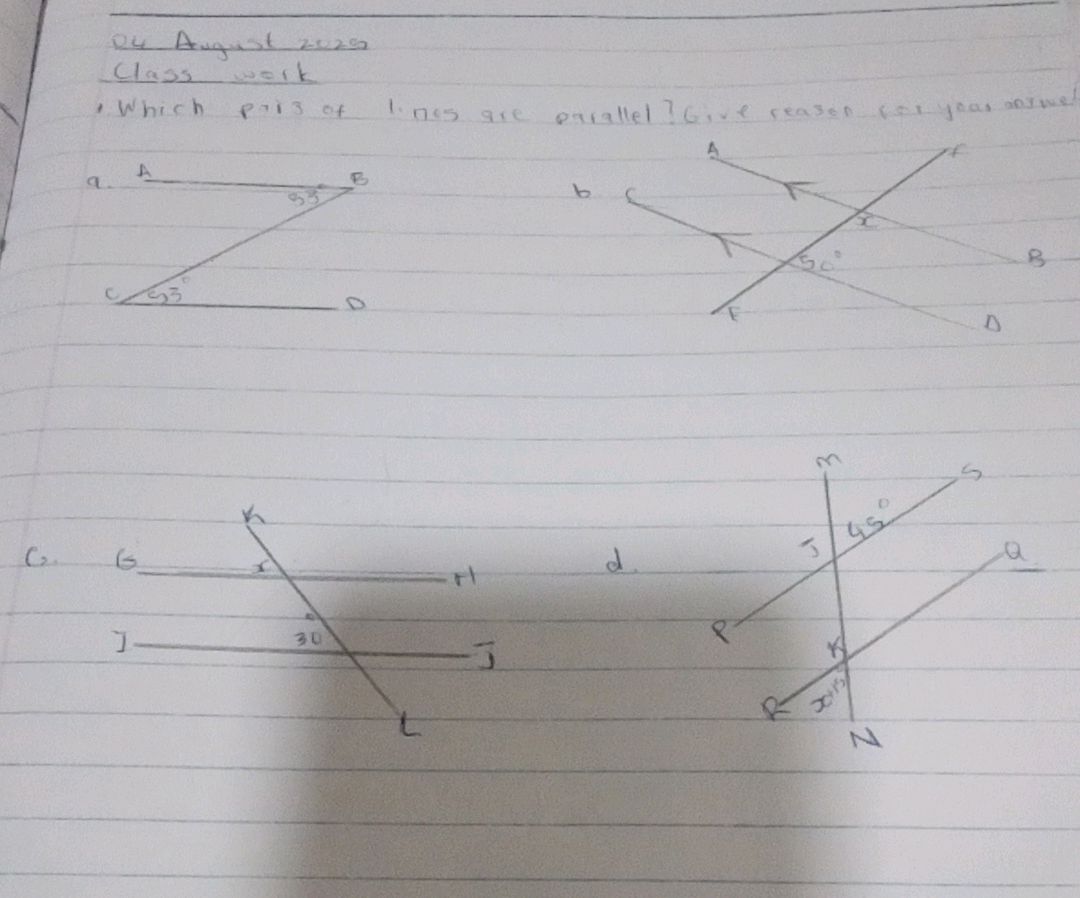 04 August 2025
Class work
Which pairs of lines are parallel? Give reason for your answer
a. A B
53°
C 53° D
b A F
C x
50° B
E D
C. K
G x H
30°
I J
L
d. M S
J 45° Q
P
K
R N